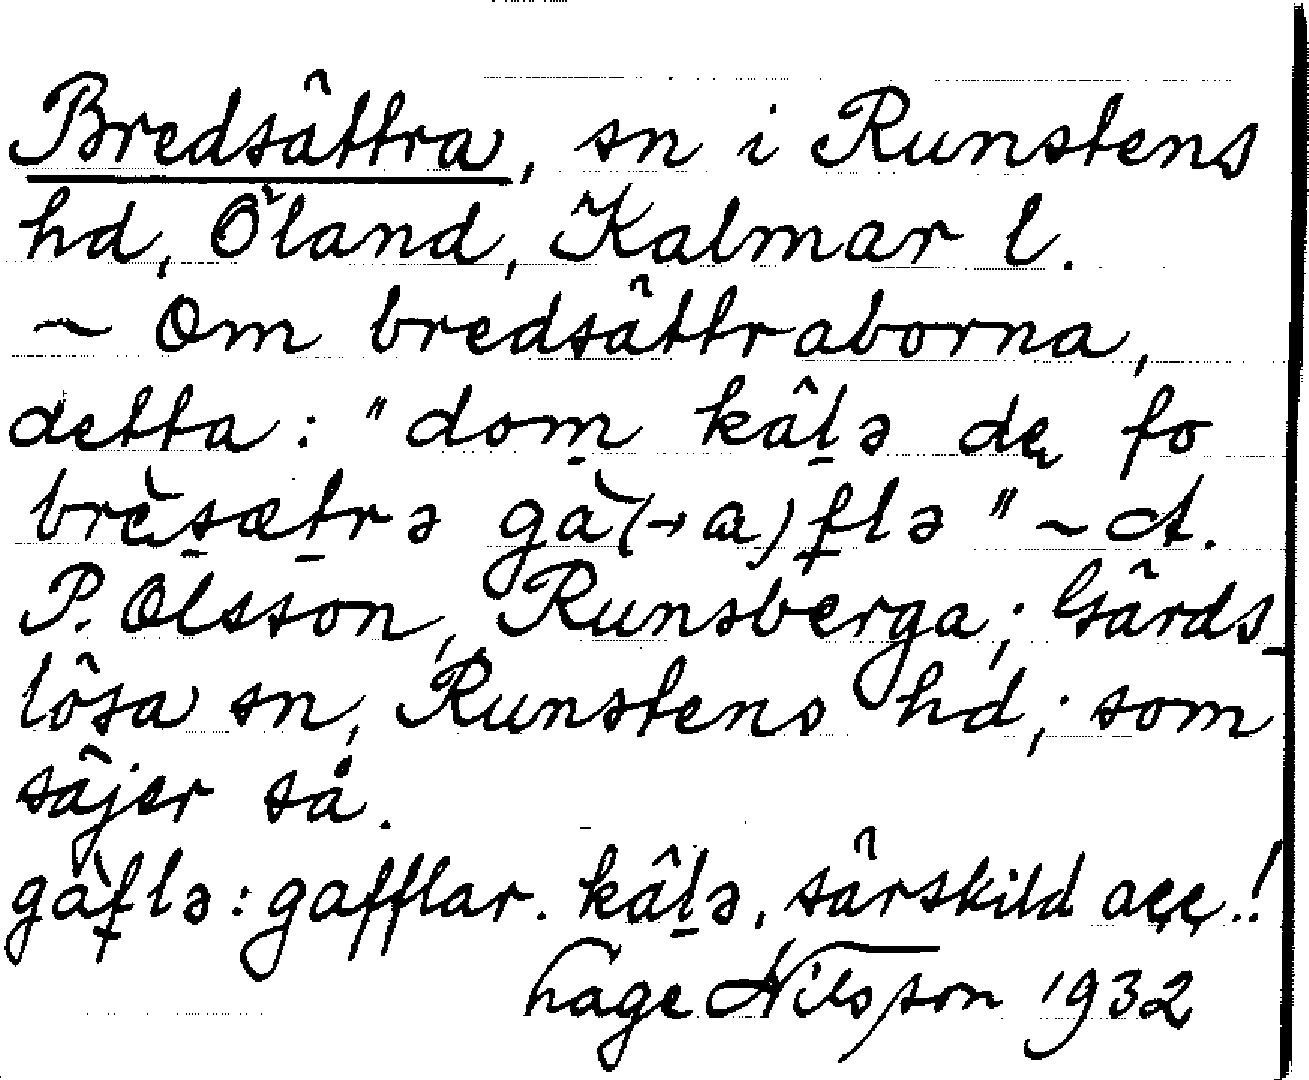 Bredsättra, sn i Runstens
hd, Öland, Kalmar l.
~ Om bredsättraborna,
detta: "dom kâl̠ə dę fo
brèsætrə gà(→ɑ)flə" ~ A.
P. Olsson, Runsberga; Gärds-
lösa sn, Runstens hd; som
säjer så.
gàflə: gafflar. kâl̠ə, särskild acc.!
Hage Nilsson 1932